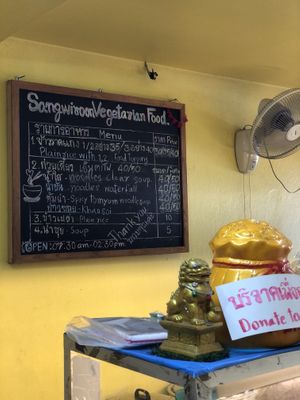 Sangwiroon Vegetarian Food
รายการอาหาร Menu ราคา Price
1. ข้าวราดแกง 1/2อย่าง35/3อย่าง40
Plain rice with 1,2 food Topping
2. ก๋วยเตี๋ยว 40/50
น้ำใส - noodles clear soup 40/50
noodles waterfall 40/50
ต้มยำ - Spicy Tomyum noodle soup 40/50
ข้าวซอย - Khao Soi 40/50
3. ข้าวเปล่า Plain rice 10
4. น้ำซุป - Soup 5
Thank You
OPEN : 07.30 am - 02.30 pm.
บริจาคเพื่อ
Donate to